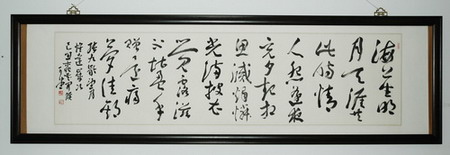 海上生明
月天涯共
此時情
人怨遙夜
竟夕起相
思滅燭憐
光滿披衣
覺露滋
不堪盈手
贈還寢
夢佳期
張九齡望月